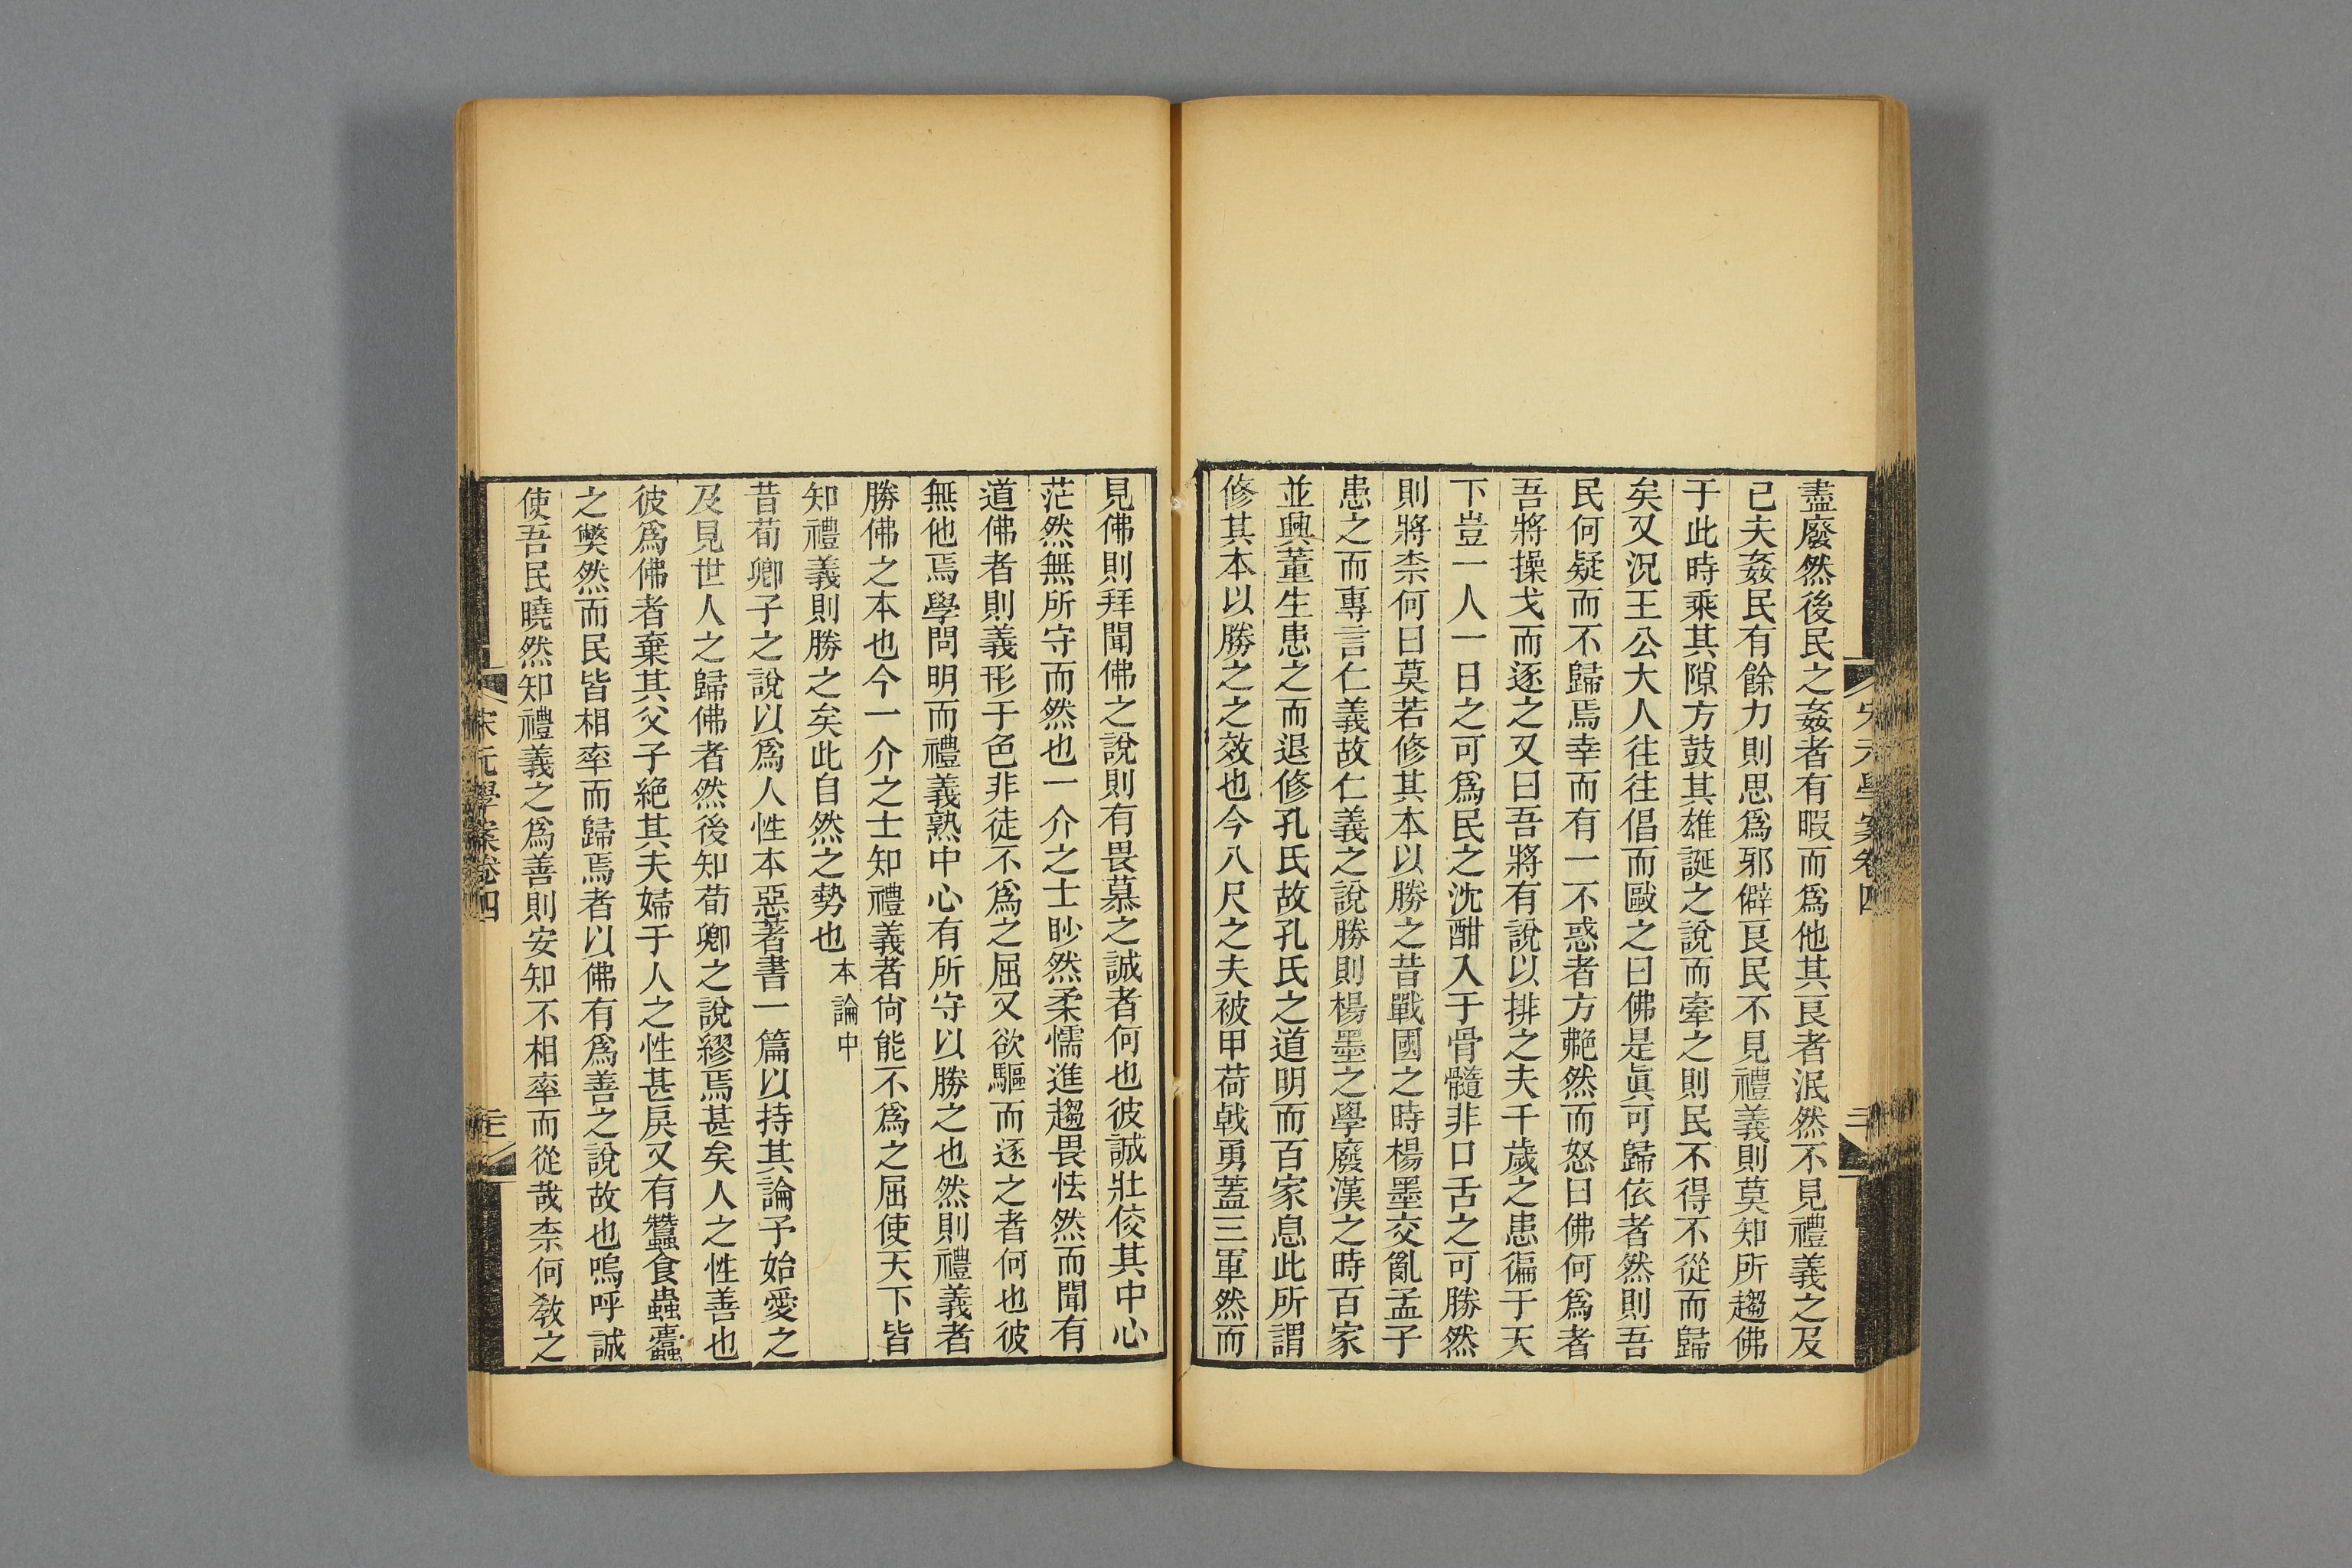 盡廢然後民之姦者有暇而爲他其良者泯然不見禮義之及
己夫姦民有餘力則思爲邪僻良民不見禮義則莫知所趨佛
于此時乘其隙方鼓其雄誕之說而牽之則民不得不從而歸
矣又況王公大人往往倡而敺之曰佛是眞可歸依者然則吾
民何疑而不歸焉幸而有一不惑者方艴然而怒曰佛何爲者
吾將操戈而逐之又曰吾將有說以排之夫千歲之患徧于天
下豈一人一日之可爲民之沈酣入于骨髓非口舌之可勝然
則將柰何曰莫若修其本以勝之昔戰國之時楊墨交亂孟子
患之而專言仁義故仁義之說勝則楊墨之學廢漢之時百家
並興董生患之而退修孔氏故孔氏之道明而百家息此所謂
修其本以勝之之效也今八尺之夫被甲荷戟勇蓋三軍然而
見佛則拜聞佛之說則有畏慕之誠者何也彼誠壯佼其中心
茫然無所守而然也一介之士眇然柔懦進趨畏怯然而聞有
道佛者則義形于色非徒不爲之屈又欲驅而逐之者何也彼
無他焉學問明而禮義熟中心有所守以勝之也然則禮義者
勝佛之本也今一介之士知禮義者尙能不爲之屈使天下皆
知禮義則勝之矣此自然之勢也 本論中
昔荀卿子之說以爲人性本惡著書一篇以持其論予始愛之
及見世人之歸佛者然後知荀卿之說繆焉甚矣人之性善也
彼爲佛者棄其父子絶其夫婦于人之性甚戾又有蠶食蟲蠹
之獘然而民皆相率而歸焉者以佛有爲善之說故也嗚呼誠
使吾民曉然知禮義之爲善則安知不相率而從哉柰何敎之
宋元學案卷四